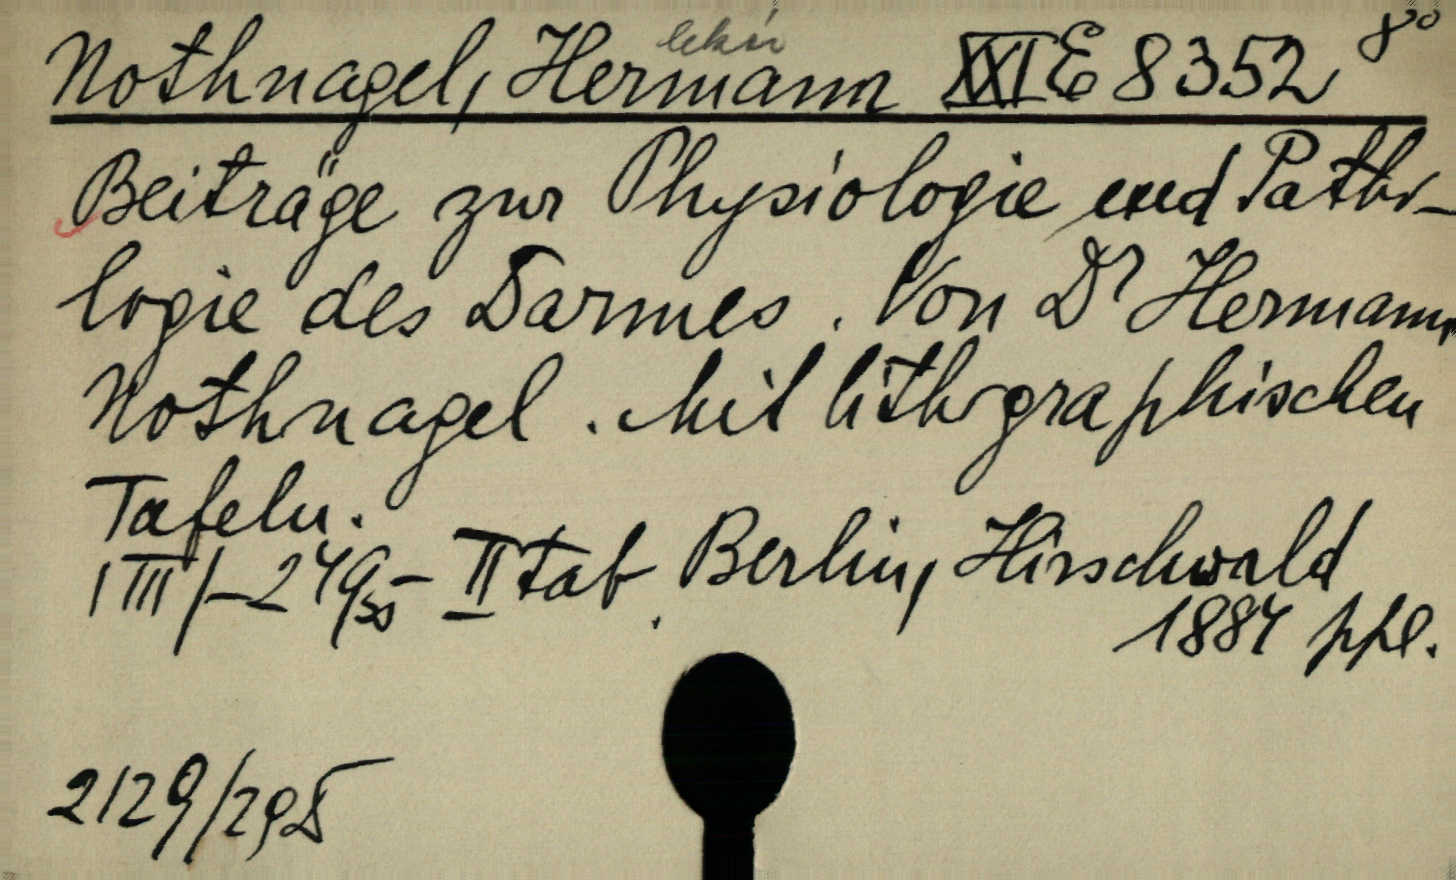 lekár
Nothnagel, Hermann XXI E 8352 8°
Beiträge zur Physiologie und Patho-
logie des Darmes. Von Dr Hermann
Nothnagel. Mit lithographischen
Tafeln.
II tab. Berlin, Hirschwald
1884 ppl.
2129/29